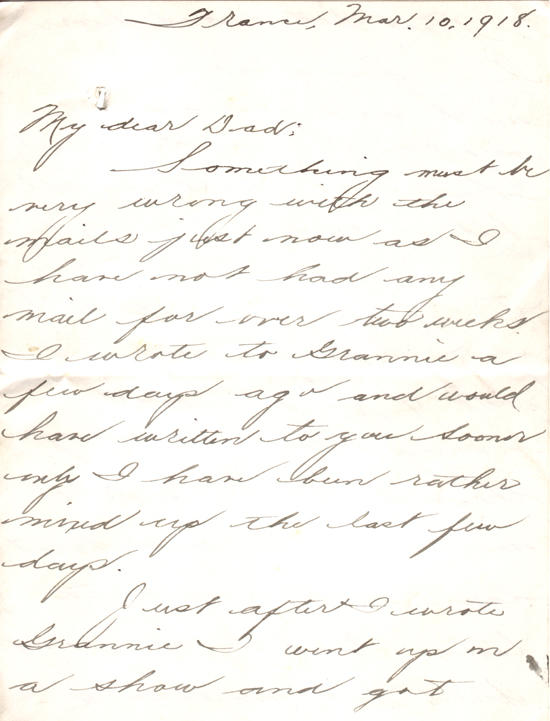 France, Mar. 10, 1918.
My dear Dad:
Something must be
very wrong with the
mails just now as I
have not had any
mail for over two weeks.
I wrote to Grannie a
few days ago and would
have written to you sooner
only I have been rather
mixed up the last few
days.
Just after I wrote
Grannie I went up on
a show and got